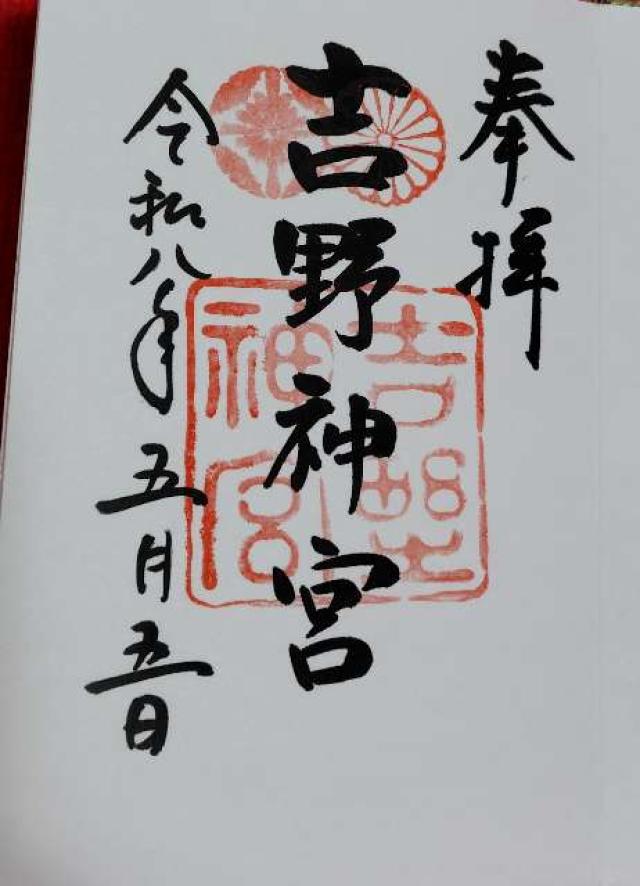 奉拝
吉野神宮
吉野神宮
令和八年五月五日